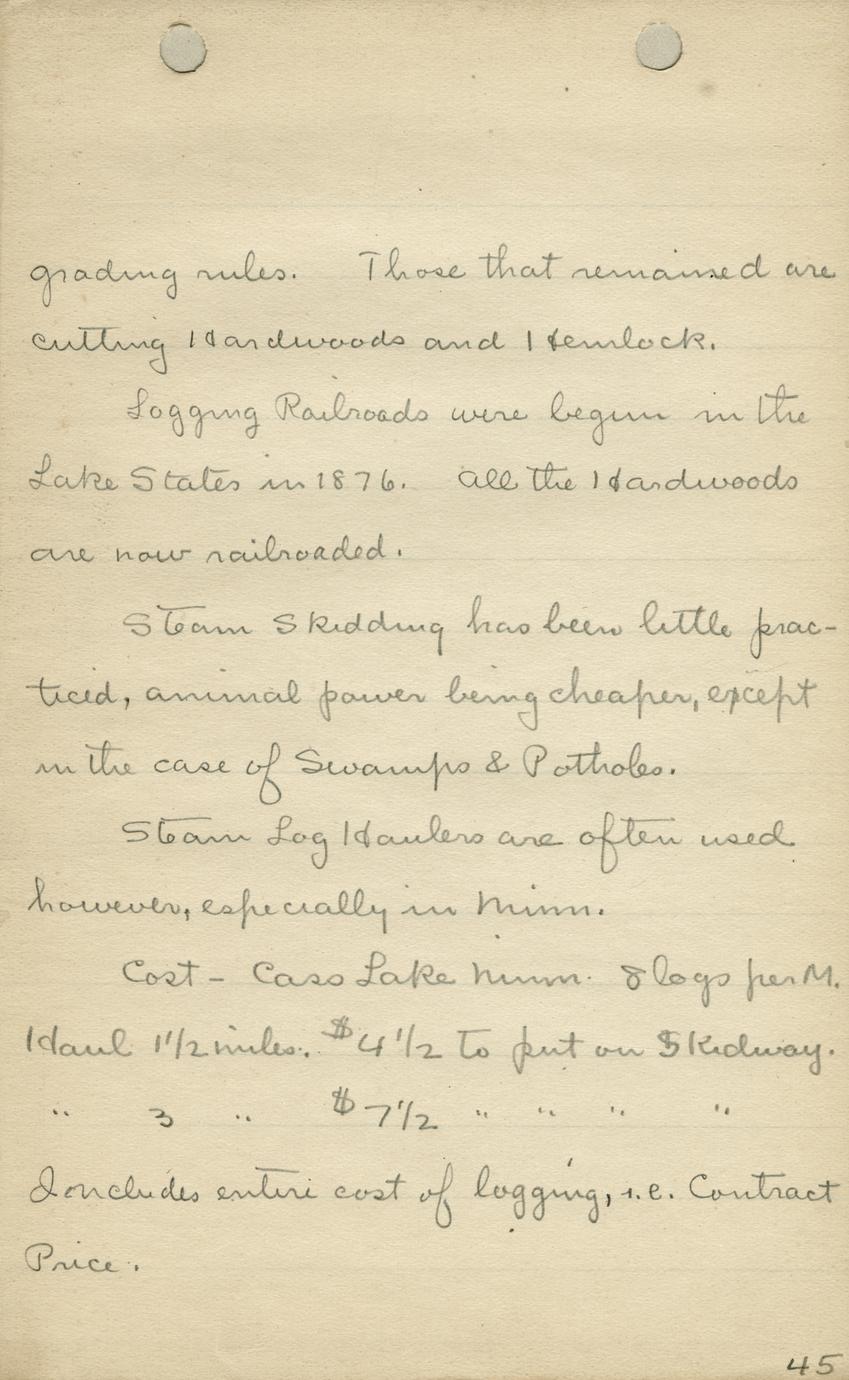 grading rules. Those that remained are
cutting Hardwoods and Hemlock.
Logging Railroads were begun in the
Lake States in 1876. All the Hardwoods
are now railroaded.
Steam Skidding has been little prac-
ticed, animal power being cheaper, except
in the case of Swamps & Potholes.
Steam Log Haulers are often used
however, especially in Minn.
Cost - Cass Lake Minn. 8 logs per M.
Haul 1 1/2 miles. $4 1/2 to put on Skidway.
" 3 " $7 1/2 " " " "
Includes entire cost of logging, i.e. Contract
Price.
45